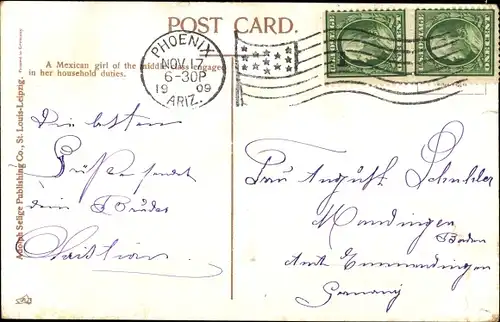 POST CARD.
A Mexican girl of the middle class engaged
in her household duties.
PHOENIX
NOV 17
6-30P
1909
ARIZ.
Adolph Selige Publishing Co., St. Louis-Leipzig.
Printed in Germany
Die besten
Grüße sendet
dein Bruder
Frau August
Mundingen
Baden
Amt Emmendingen
Germany